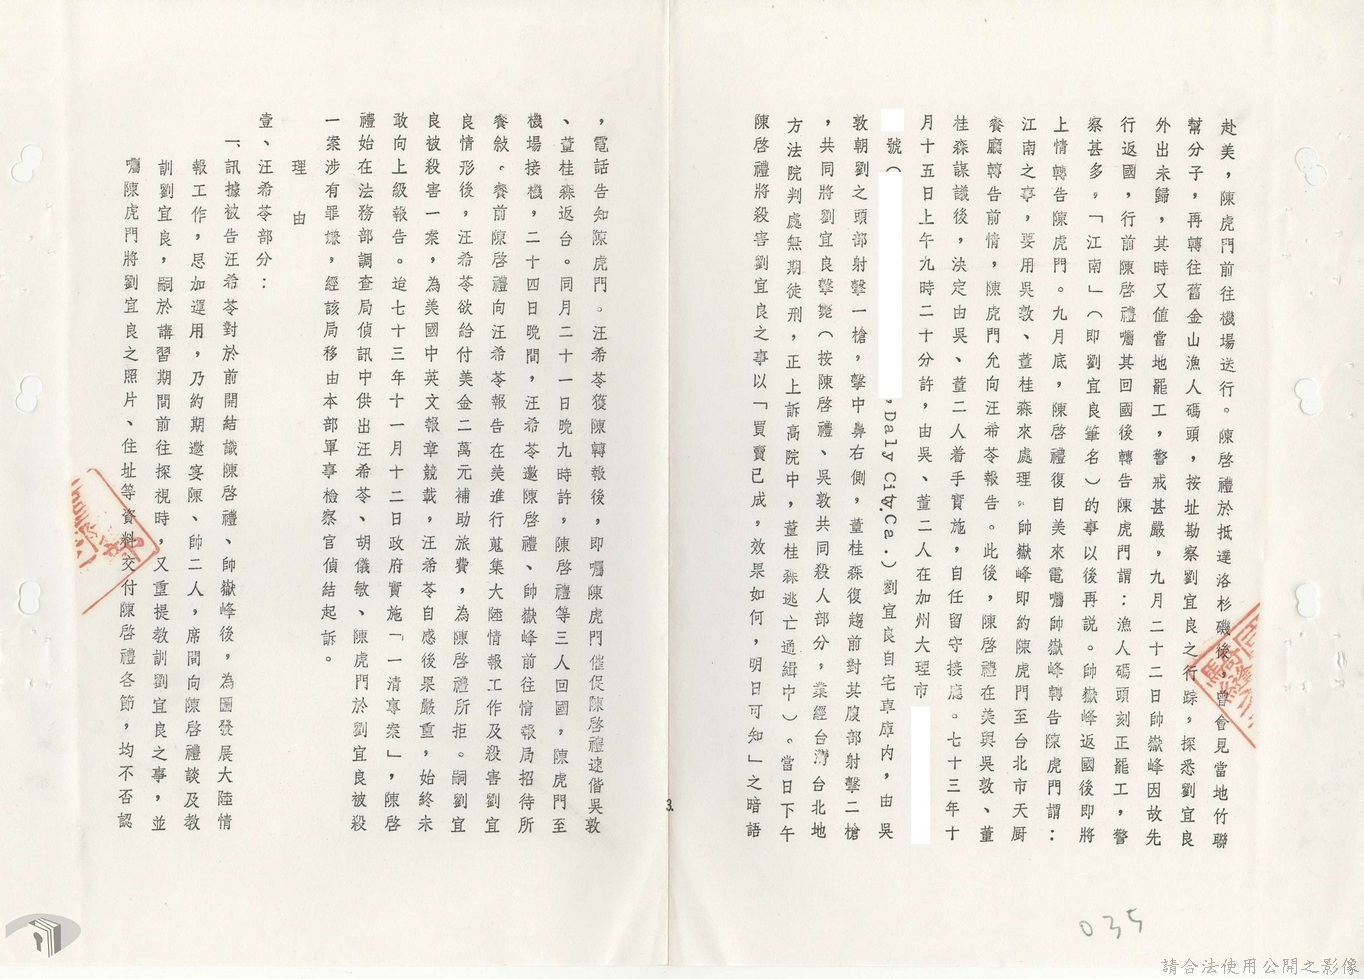 赴美，陳虎門前往機場送行。陳啓禮於抵達洛杉磯後，曾會見當地竹聯
幫分子，再轉往舊金山漁人碼頭，按址勘察劉宜良之行踪，探悉劉宜良
外出未歸，其時又值當地罷工，警戒甚嚴，九月二十二日帥嶽峰因故先
行返國，行前陳啓禮囑其回國後轉告陳虎門謂：漁人碼頭刻正罷工，警
察甚多，「江南」（即劉宜良筆名）的事以後再説。帥嶽峰返國後即將
上情轉告陳虎門。九月底，陳啓禮復自美來電囑帥嶽峰轉告陳虎門謂：
江南之事，要用吳敦、董桂森來處理。帥嶽峰即約陳虎門至台北市天厨
餐廳轉告前情，陳虎門允向汪希苓報告。此後，陳啓禮在美與吳敦、董
桂森謀議後，決定由吳、董二人着手實施，自任留守接應。七十三年十
月十五日上午九時二十分許，由吳、董二人在加州大理市
號（，Daly City.Ca.）劉宜良自宅車庫内，由吳
敦朝劉之頭部射擊一槍，擊中鼻右側，董桂森復趨前對其腹部射擊二槍
，共同將劉宜良擊斃（按陳啓禮、吳敦共同殺人部分，業經台灣台北地
方法院判處無期徒刑，正上訴高院中，董桂森逃亡通緝中）。當日下午
陳啓禮將殺害劉宜良之事以「買賣已成，效果如何，明日可知」之暗語
3
，電話告知陳虎門。汪希苓獲陳轉報後，即囑陳虎門催促陳啓禮速偕吳敦
、董桂森返台。同月二十一日晚九時許，陳啓禮等三人回國，陳虎門至
機場接機，二十四日晚間，汪希苓邀陳啓禮、帥嶽峰前往情報局招待所
餐敍。餐前陳啓禮向汪希苓報告在美進行蒐集大陸情報工作及殺害劉宜
良情形後，汪希苓欲給付美金二萬元補助旅費，為陳啓禮所拒。嗣劉宜
良被殺害一案，為美國中英文報章競載，汪希苓自感後果嚴重，始終未
敢向上級報告。迨七十三年十一月十二日政府實施「一清專案」，陳啓
禮始在法務部調查局偵訊中供出汪希苓、胡儀敏、陳虎門於劉宜良被殺
一案涉有罪嫌，經該局移由本部軍事檢察官偵結起訴。
理由
壹、汪希苓部分：
一、訊據被告汪希苓對於前開結識陳啓禮、帥嶽峰後，為圖發展大陸情
報工作，思加運用，乃約期邀宴陳、帥二人，席間向陳啓禮談及教
訓劉宜良，嗣於講習期間前往探視時，又重提教訓劉宜良之事，並
囑陳虎門將劉宜良之照片、住址等資料交付陳啓禮各節，均不否認
035
請合法使用公開之影像